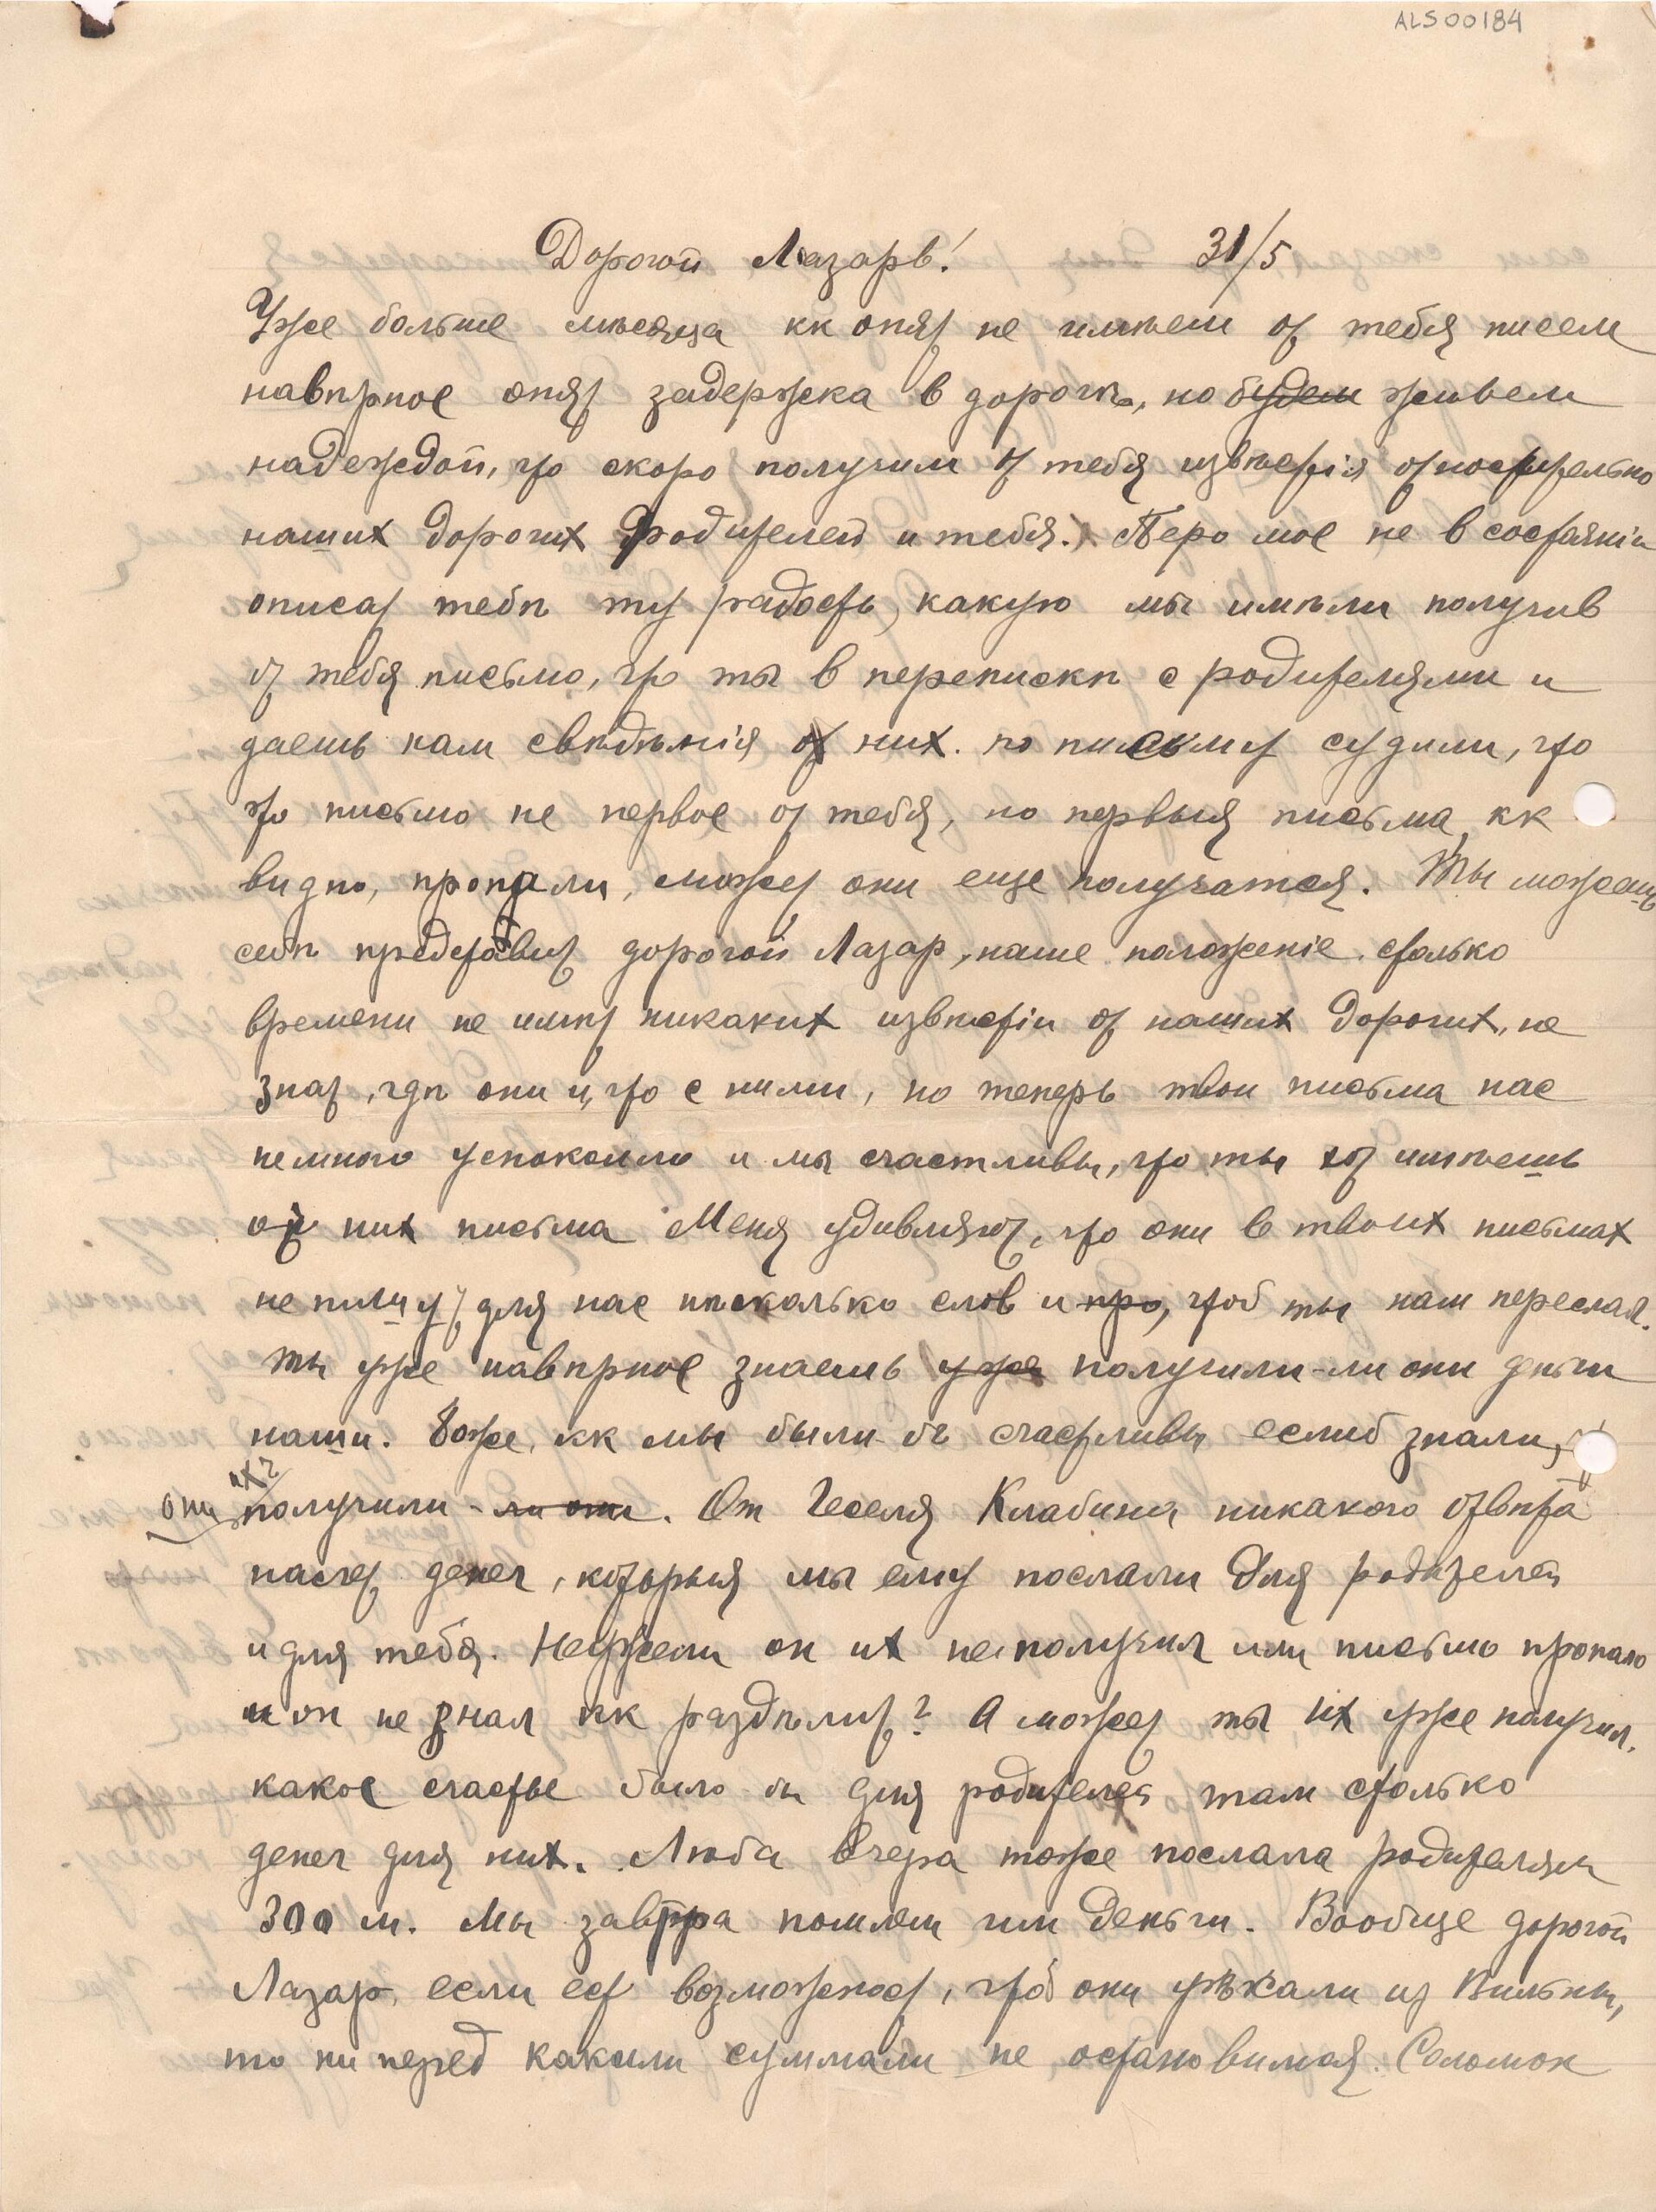 ALS00184
Дорогой Лазарь! 31/5
Уже больше мѣсяца кк опят не имѣем от тебя писем
навѣрное опят задержка в дорогѣ, но будем живем
надеждой, что скоро получим от тебя извѣстія относительно
наших дорогих родителей и тебя. Перо мое не в состаяніи
описат тебѣ ту радость, какую мы имѣли получив
от тебя письмо, что ты в перепискѣ с родителями и
даешь нам свѣдѣнія от них. по письму судили, что
это письмо не первое от тебя, но первыя письма, кк
видно, пропали, может они еще получатся. Ты можешь
себѣ представит дорогой Лазар, наше положеніе. столько
времени не имѣт никаких извѣстіи от наших дорогих, не
знат, гдѣ они и, что с ними, но теперь твои письма нас
немного успокоило и мы счастливы, что ты от имѣешь
от них письма Меня удивляют, что они в твоих письмах
не пишут для нас нѣсколько слов и про, чтоб ты нам переслал.
ты уже навѣрное знаешь уже получили-ли они деньги
наши. Боже, кк мы были бы счастливы еслиб знали,
они их? получили - ли они. От Геселя Клабина никакого отвѣта
насчет денег, которыя мы ему послали для родителей
и для тебя. Неужели он их не получил или письмо пропало
и он не знал кк раздѣлит? А может ты их уже получил.
какое счастье было бы для родителей там столько
денег для них. Люба вчера тоже послала родителям
300 м. Мы завтра пошлем им деньги. Вообще дорогой
Лазар, если ест возможност, чтоб они уѣхали из Вильны,
то ни перед какими суммами не остановимся. Соломон